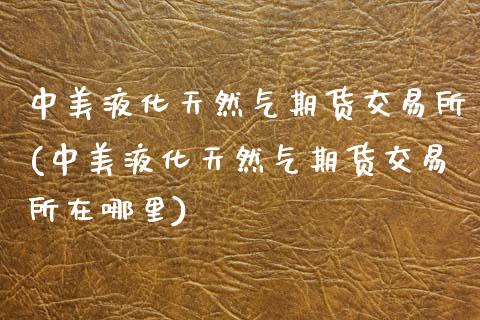 中美液化天然气期货交易所
(中美液化天然气期货交易
所在哪里)